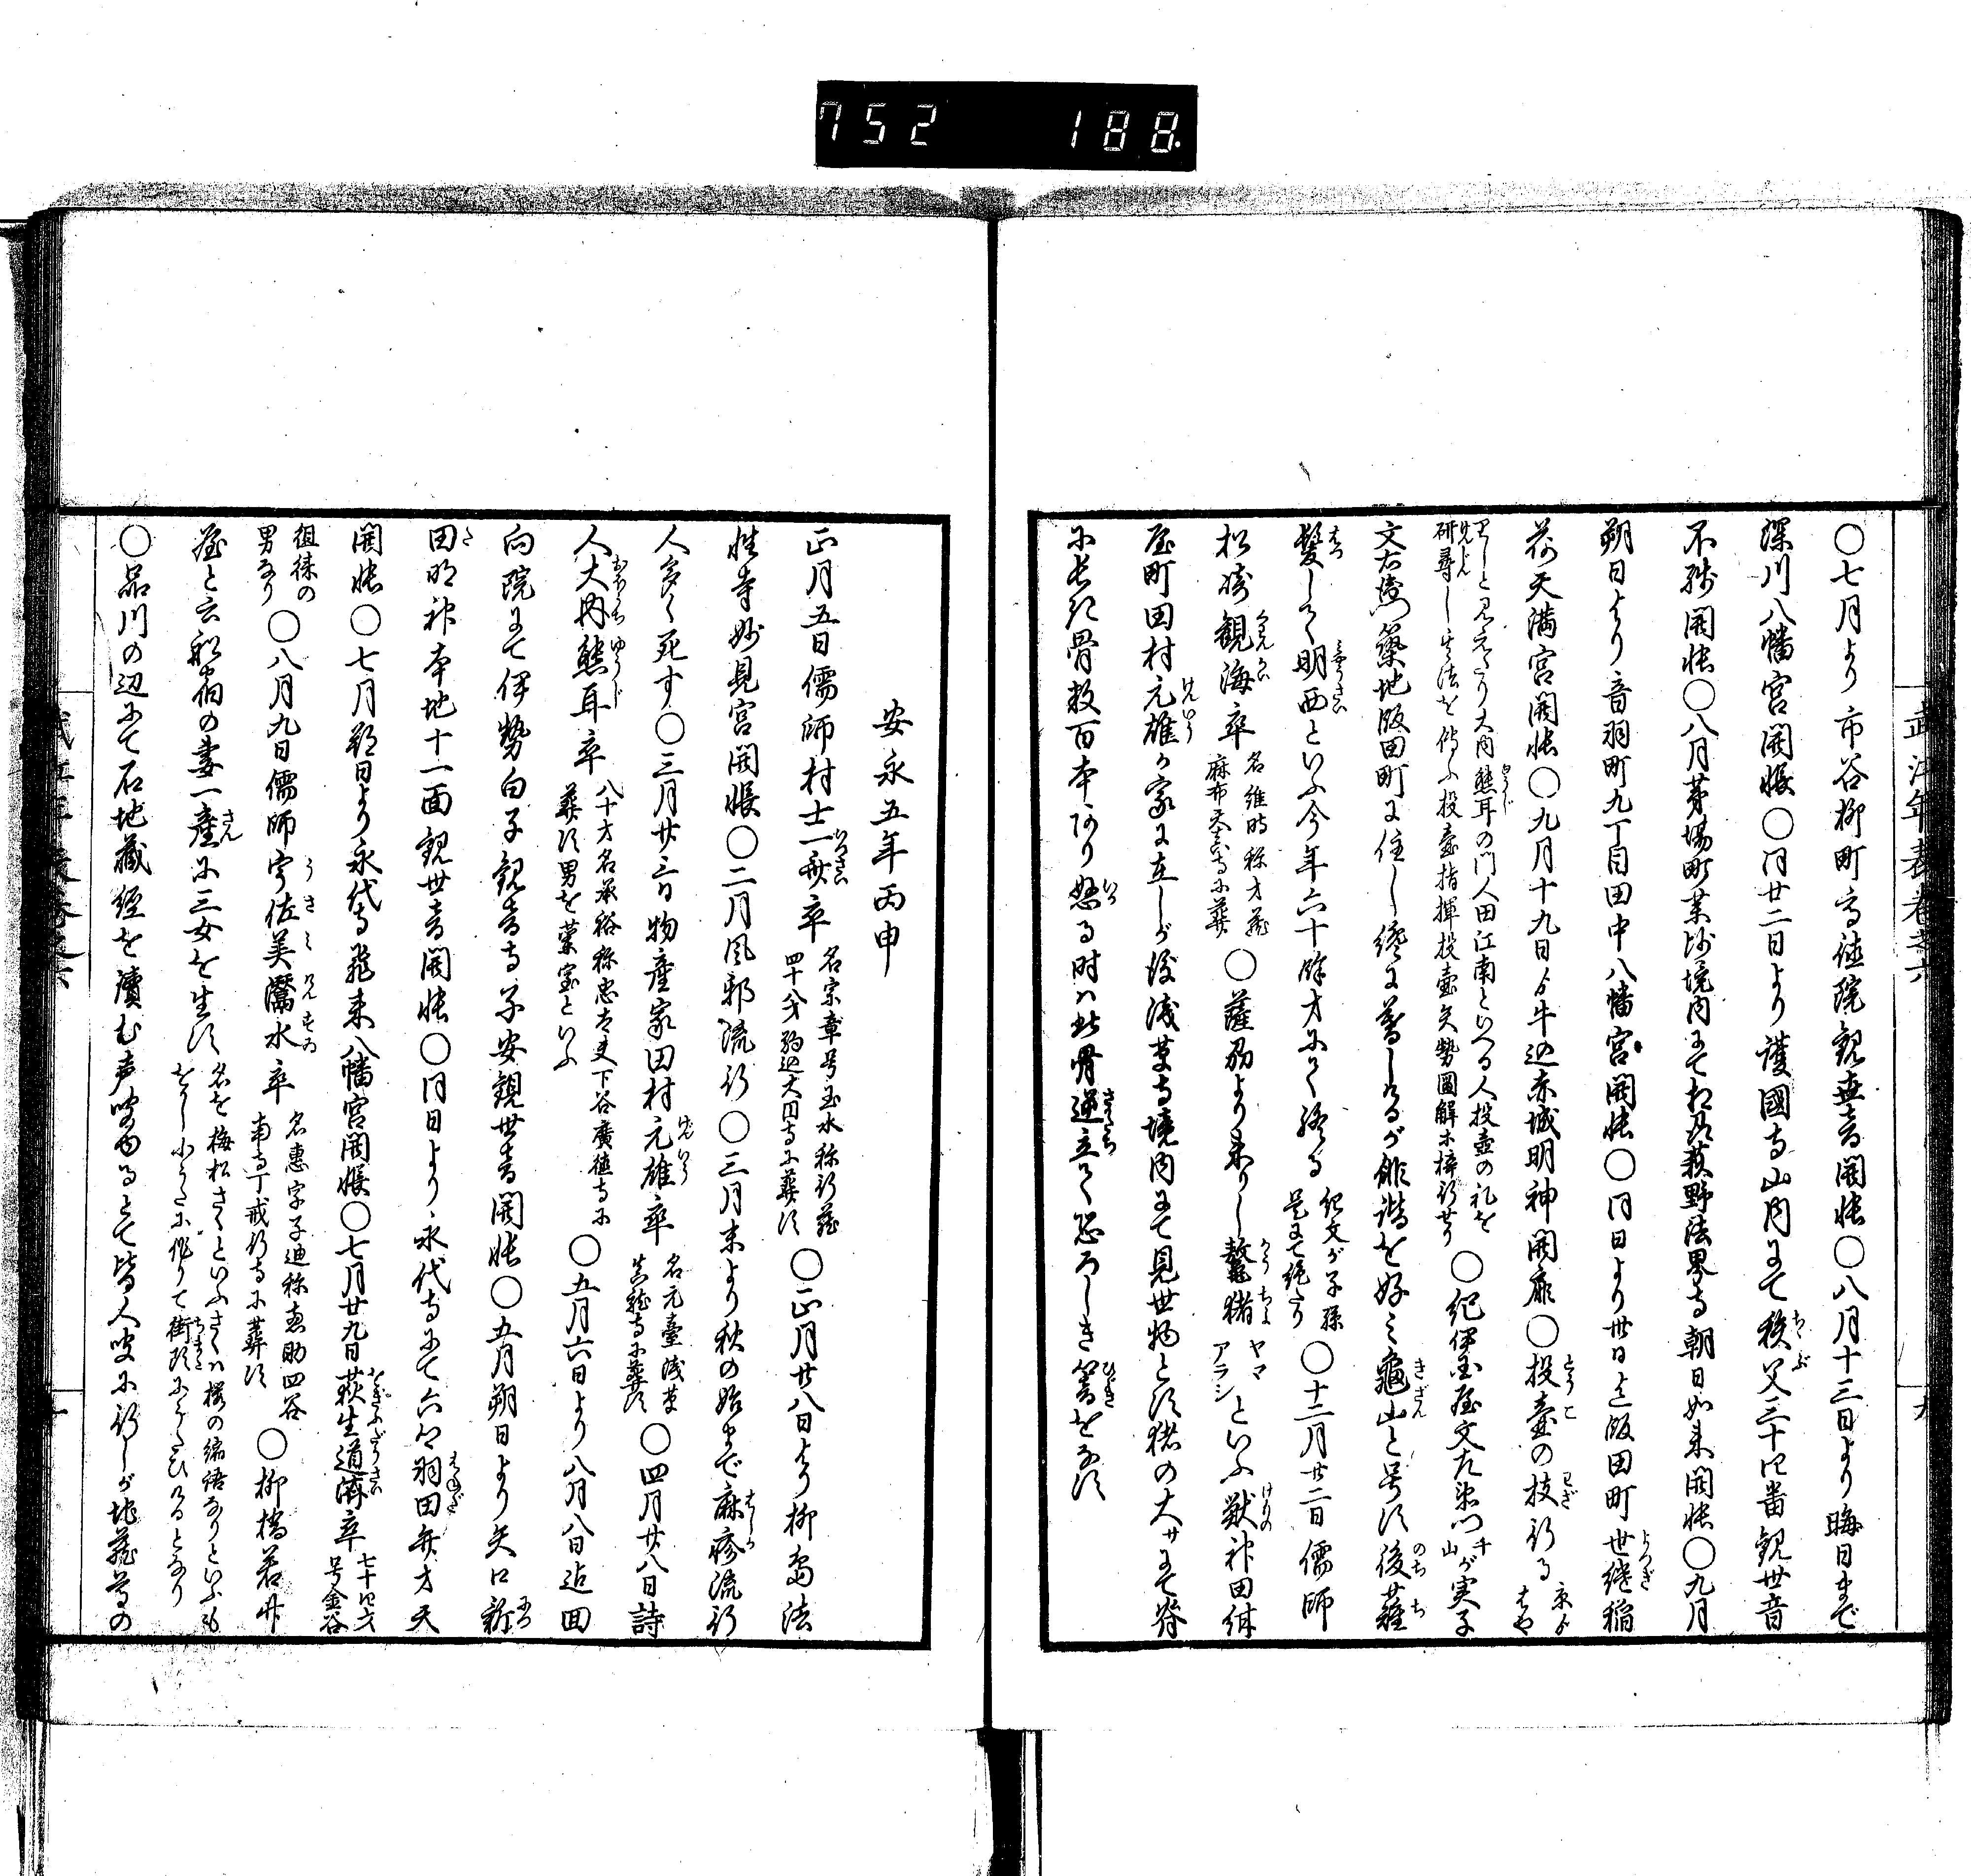 752 188
武江年表巻之六
九
○七月より市谷柳町高徳院観世音開帳○八月十三日より晦日まで
深川八幡宮開帳○同廿二日より護國寺山内にて秩父三十四番観世音
不残開帳○八月茅場町薬師境内にて相州萩野法界寺朝日如来開帳○九月
朔日より音羽町九丁目田中八幡宮開帳○同日より廿日迄飯田町世継稲
荷天満宮開帳○九月十九日より牛込赤城明神開扉○投壷の技行る 京より はや
りしと見えたり大内熊耳の門人田江南といへる人投壷の礼を
研尋し其法を傳ふ投壷指揮投壷矢勢圖解等梓行せり
○紀伊國屋文左衛門 千山 が実子
文右衛門築地飯田町に住し後に暮しけるが俳諧を好み龜山と号す後薙
髪して明西といふ今年六十餘才にて終る 紀文が子孫 是にて絶たり ○十二月廿二日儒師
松崎観海卒 名維時称才蔵 麻布天真寺に葬 ○薩州より来りし鼇猪 ヤマ アラシ といふ獣神田紺
屋町田村元雄が家に在しが後浅草寺境内にて見世物とす猪の大サにて脊
に長き骨数百本あり怒る時は此骨逆立て恐ろしき響をなす
安永五年丙申
正月五日儒師村士一斎卒 名宗章号玉水称行蔵 四十八才駒込大円寺に葬す ○正月廿八日より柳島法
性寺妙見宮開帳○二月風邪流行○三月末より秋の始まで麻疹流行
人多く死す○三月廿三日物産家田村元雄卒 名元臺浅草 真龍寺に葬す ○四月廿八日詩
人大内熊耳卒 八十才名承裕称忠太夫下谷廣徳寺に 葬す男を蘭室といふ ○五月六日より八月八日迄回
向院にて伊勢白子観音寺子安観世音開帳○五月朔日より矢口新
田明神本地十一面観世音開帳○同日より永代寺にて六郷羽田弁才天
開帳○七月朔日より永代寺飛来八幡宮開帳○七月廿九日荻生道済卒 七十四才 号金谷
徂徠の 男なり ○八月九日儒師宇佐美灊水卒 名惠字子迪称恵助四谷 南寺丁戒行寺に葬す ○柳橋若竹
屋と云船宿の妻一産に三女を生す 名を梅松さくといふさくは桜の縮語なりといふも をかし小うたに作りて街頭にうたひけるとなり
○品川の辺にて石地蔵経を讀む声聞ゆるとて皆人聞に行しが地蔵尊の